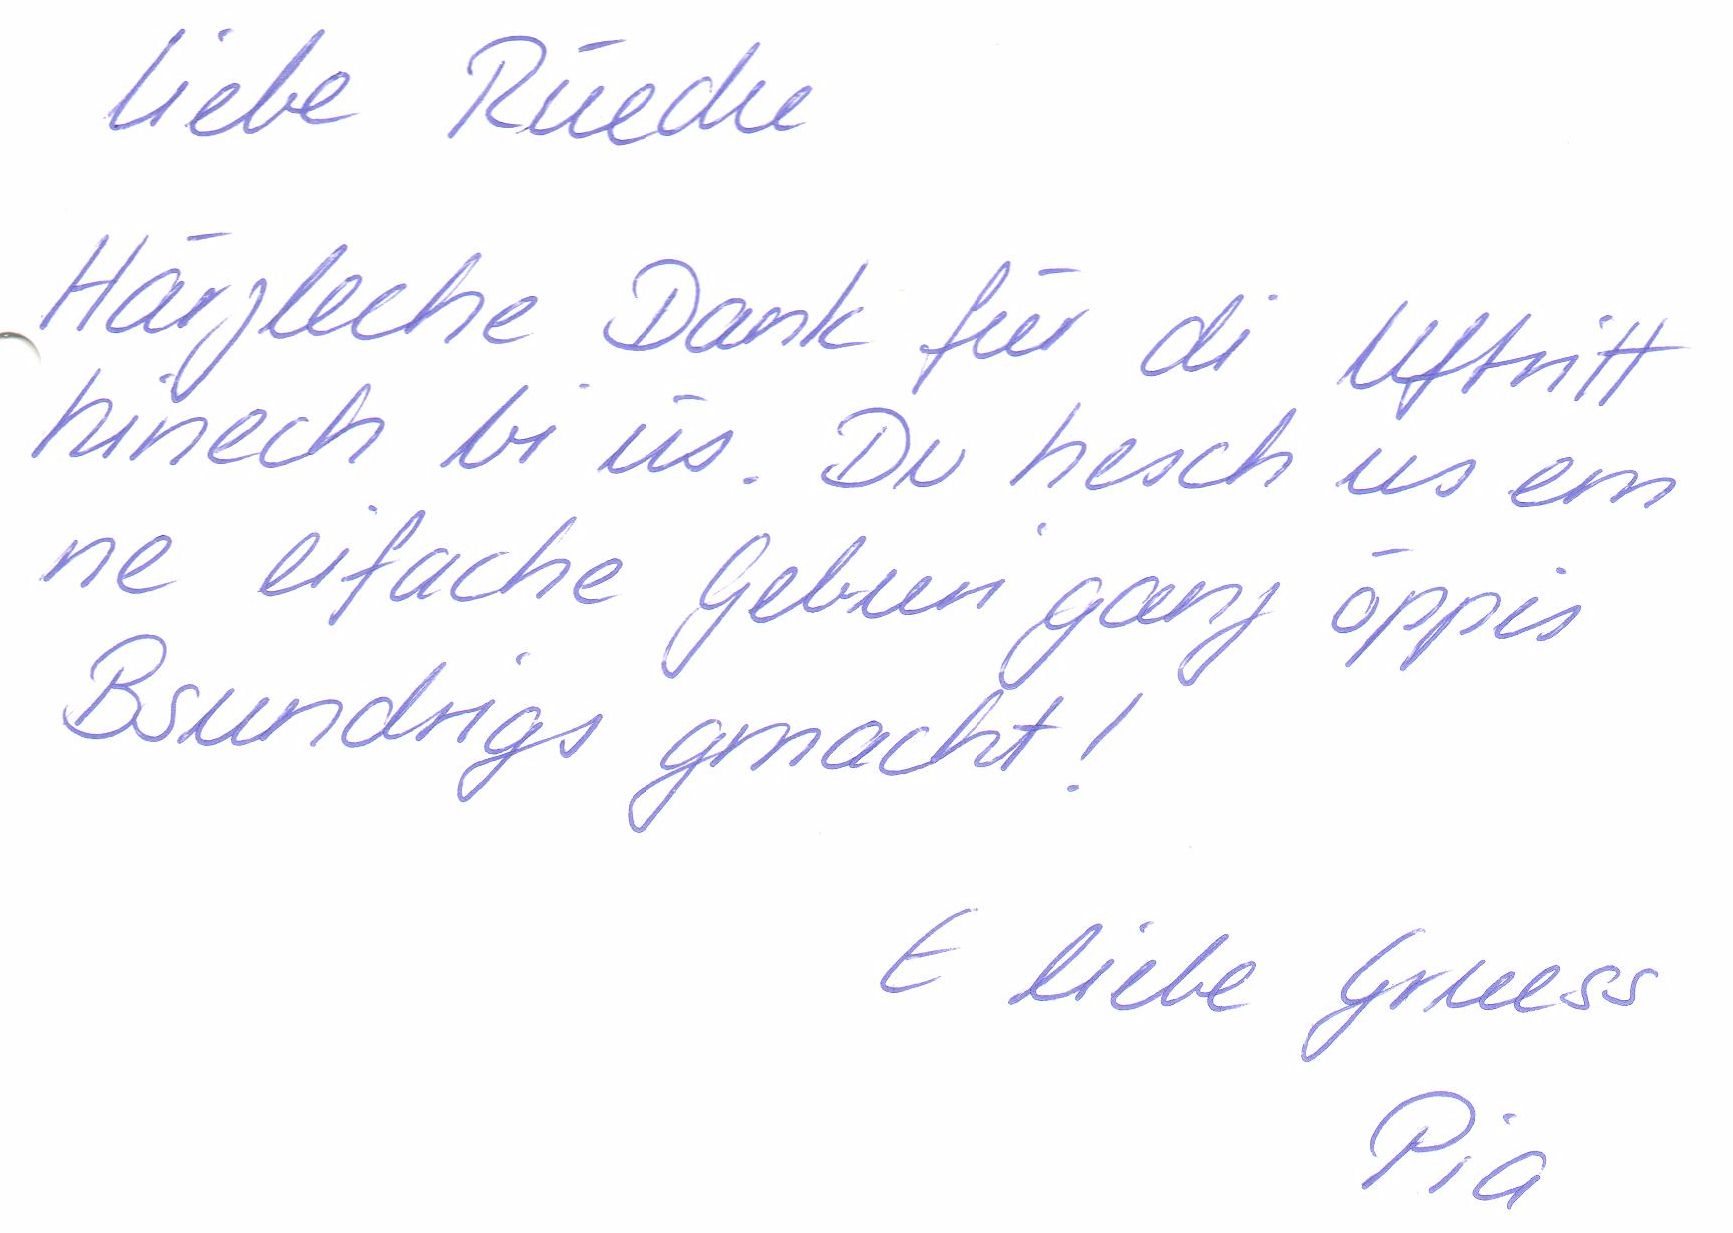 Liebe Rüedu
Härzleche Dank für di Uftritt
hinech bi üs. Du hesch us em
ne eifache Geburi ganz öppis
Bsundrigs gmacht!
E liebe Gruess
Pia